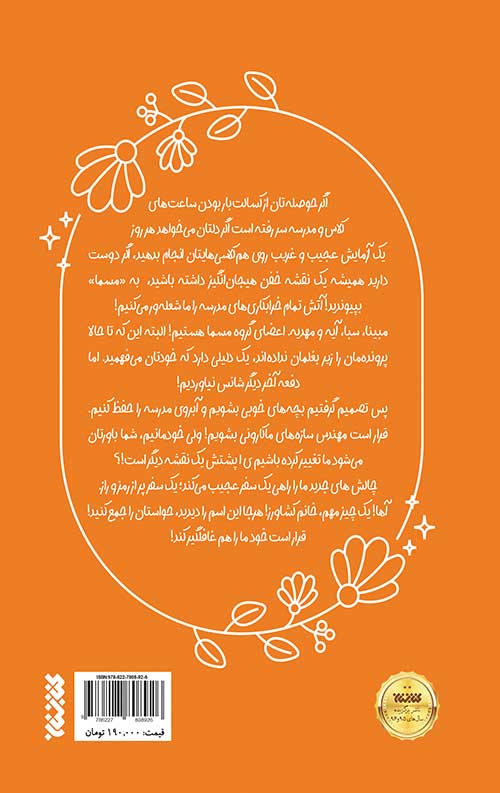 اگر حوصله‌تان از کسالت‌بار بودن ساعت‌های
کلاس و مدرسه سر رفته است اگر دلتان می‌خواهد هر روز
یک آزمایش عجیب و غریب روی هم‌کلاسی‌هایتان انجام بدهید، اگر دوست
دارید همیشه یک نقشه خفن هیجان‌انگیز داشته باشید، به «مسما»
بپیوندید! آتش تمام خرابکاری‌های مدرسه را ما شعله‌ور می‌کنیم!
مبینا، سبا، آیه و مهدیه. اعضای گروه مسما هستیم! البته این که تا حالا
پرونده‌مان را زیر بغلمان نداده‌اند، یک دلیلی دارد که خودتان می‌فهمید. اما
دفعه آخر دیگر شانس نیاوردیم!
پس تصمیم گرفتیم بچه‌های خوبی بشویم و آبروی مدرسه را حفظ کنیم.
قرار است مهندس سازه‌های ماکارونی بشویم! ولی خودمانیم، شما باورتان
می‌شود ما تغییر کرده باشیم ی ا پشتش یک نقشه دیگر است!؟
چالش های جدید ما را راهی یک سفر عجیب می‌کند؛ یک سفر پر از رمز و راز.
آها! یک چیز مهم، خانم کشاورز! هرجا این اسم را دیدید، حواستان را جمع کنید!
قرار است خود ما را هم غافلگیر کند!
ISBN: 978-622-7808-92-6
9 786227 808926
قیمت: ۱۹۰,۰۰۰ تومان
سال‌های ۹۵ و ۹۴